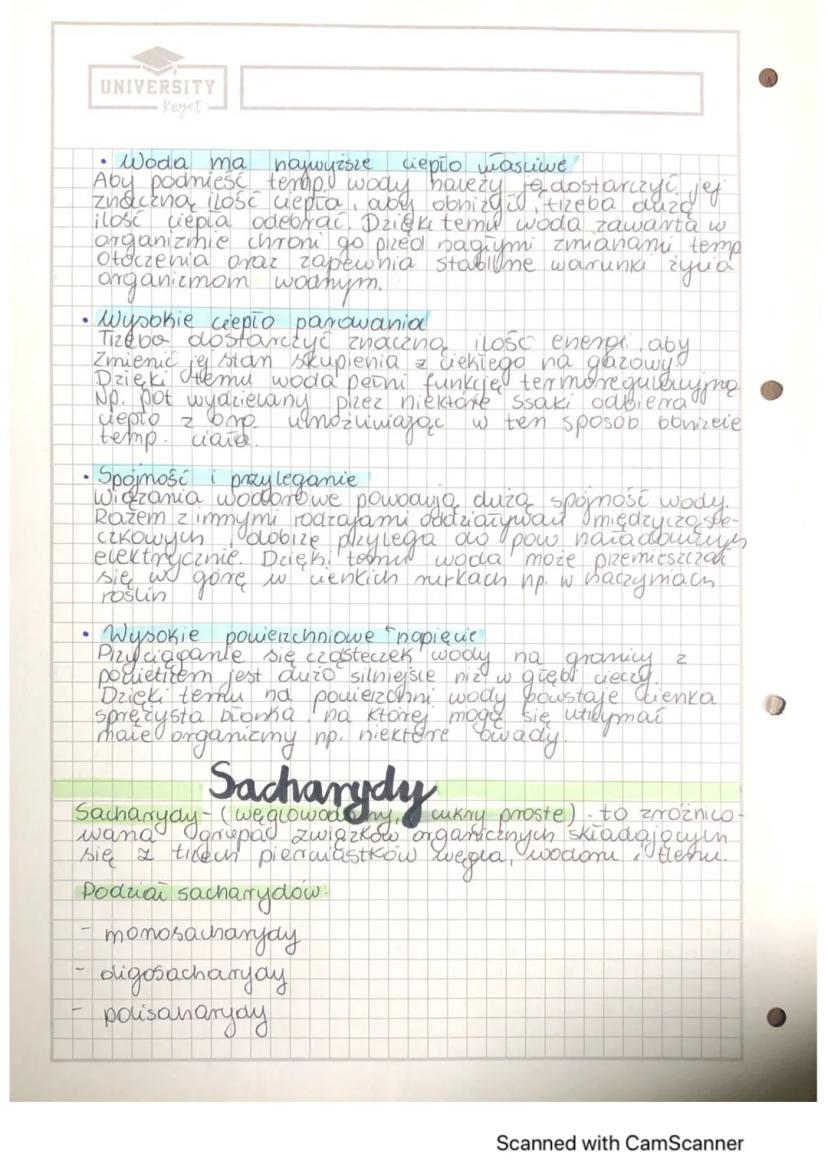 UNIVERSITY
Keyet
• Woda ma najwyższe ciepło właściwe
Aby podnieść temp. wody należy ją dostarczyć jej
znaczną ilość ciepła, aby obniżyć, trzeba dużą
ilość ciepła odebrać. Dzięki temu woda zawarta w
organizmie chroni go przed nagłymi zmianami temp
otoczenia oraz zapewnia stabilne warunki życia
organizmom wodnym.
• Wysokie ciepło parowania
Trzeba dostarczyć znaczną ilość energi, aby
zmienić jej stan skupienia z ciekłego na gazowy.
Dzięki temu woda pełni funkcję termoregulacyjną
Np. pot wydzielany przez niektóre ssaki odbiera
ciepło z umożliwiając w ten sposób obniżeie
temp. ciała.
• Spójność i przyleganie
Wiązania wodorowe powodują dużą spójność wody.
Razem z innymi rodzajami oddziaływań międzycząste-
czkowych, dobrze przylega do pow. naładowanych
elektrycznie. Dzięki temu woda może przemieszczać
się w górę w cienkich rurkach np. w naczyniach
roślin
• Wysokie powierzchniowe napięcie
Przyciąganie się cząsteczek wody na granicy z
powietrzem jest dużo silniejsze niż w głębi cieczy.
Dzięki temu na powierzchni wody powstaje cienka
sprężysta błonka, na której mogą się utrzymać
małe organizmy np. niektóre owady.
Sacharydy
Sacharydy - (węglowodany, cukry proste). to zróżnico-
wana grupa związków organicznych składających
się z trzech pierwiastków węgla, wodoru i tlenu.
Podział sacharydów:
- monosacharydy
- oligosacharydy
- polisaharydy
Scanned with CamScanner